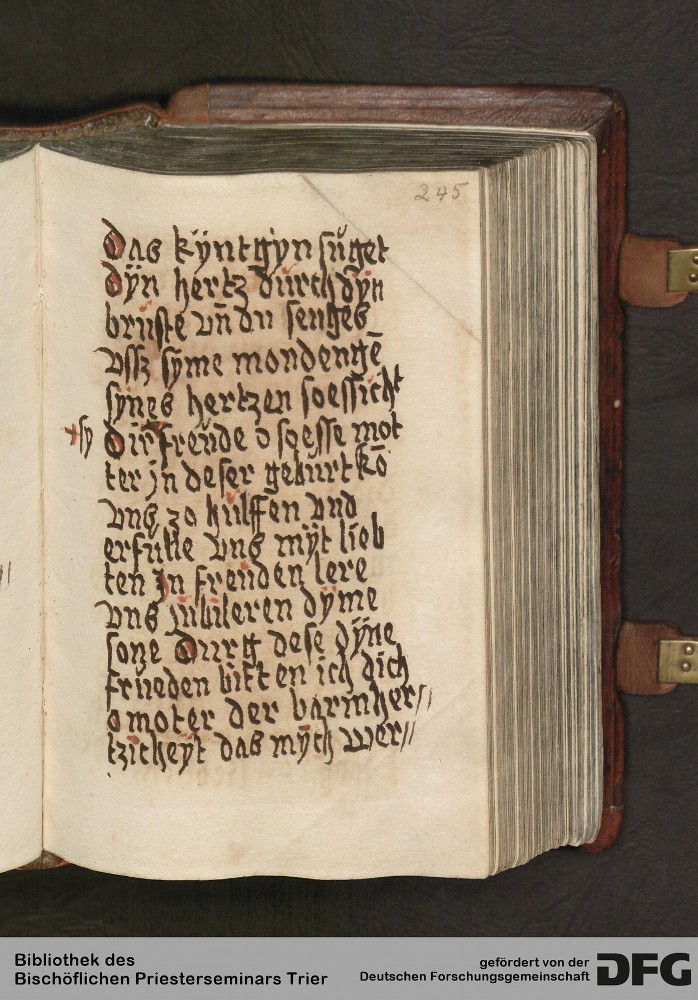 245
Das kÿntgÿn sůget
Dÿn hertz durch dÿn
brüste vn̄ du senges
vssz syme mondengē
synes hertzen soessicht
+ sy Dir freude o soesse mot
ter jn deser geburt kō
vns zo hulffen vnd
erfulle vns mÿt lieb
ten jn freuden lere
vns jubileren dÿme
sone Durg dese dÿne
frueden bitten ich dich
o moter der barmher//
tzicheÿt das mÿch wer//
Bibliothek des
Bischöflichen Priesterseminars Trier
gefördert von der
Deutschen Forschungsgemeinschaft
DFG